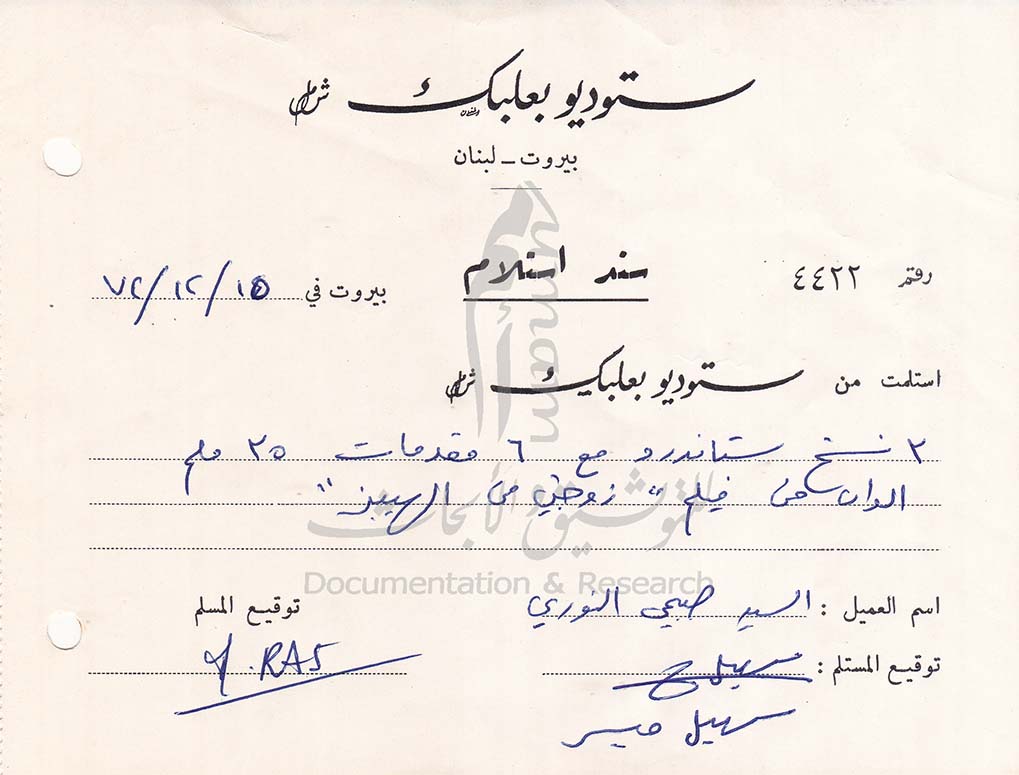 ستوديو بعلبك ش.م.ل
بيروت – لبنان
رقم ٤٤٢٢
سند استلام
بيروت في ٧٢/١٢/١٥
استلمت من ستوديو بعلبك ش.م.ل
٢ نسخ ستاندرد مع ٦ مقدمات ٣٥ ملم
الوان من فيلم " زوجتي من الهيبز "
umam
للتوثيق و الأبحاث
Documentation & Research
اسم العميل : السيد صبحي النوري
توقيع المستلم : سهيل
سهيل
توقيع المسلم